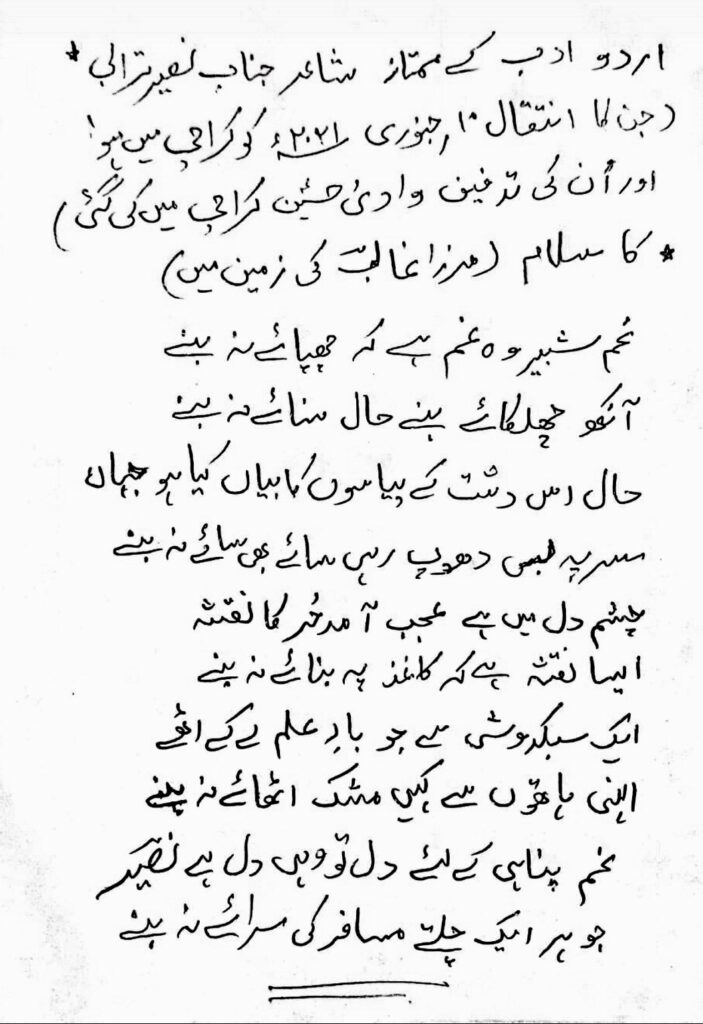 اردو ادب کے ممتاز شاعر جناب نصیر ترابی *
(جن کا انتقال ۱۰ جنوری ۲۰۲۱ء کو کراچی میں ہوا
اور اُن کی تدفین وادیٔ حسین کراچی میں کی گئی)
* کا سلام (مرزا غالبؔ کی زمین میں)
غم شبیر وہ غم ہے کہ چھپائے نہ بنے
آنکھ چھلکائے بنے حال سنائے نہ بنے
حال اس دشت کے پیاسوں کا بیاں کیا ہو جہاں
سر پہ جیسی دھوپ رہی سائے بھی سائے نہ بنے
چشم دل میں ہے عجب آمد حُر کا نقشہ
ایسا نقشہ ہے کہ کاغذ پہ بنائے نہ بنے
ایک سبکدوشی سے جو بارِ علم لے کے اٹھے
انہی ہاتھوں سے کہیں مشک اٹھائے نہ بنے
غم پناہی کے لئے دل تو وہی دل ہے نصیرؔ
جو ہر ایک چلتے مسافر کی سرائے نہ بنے